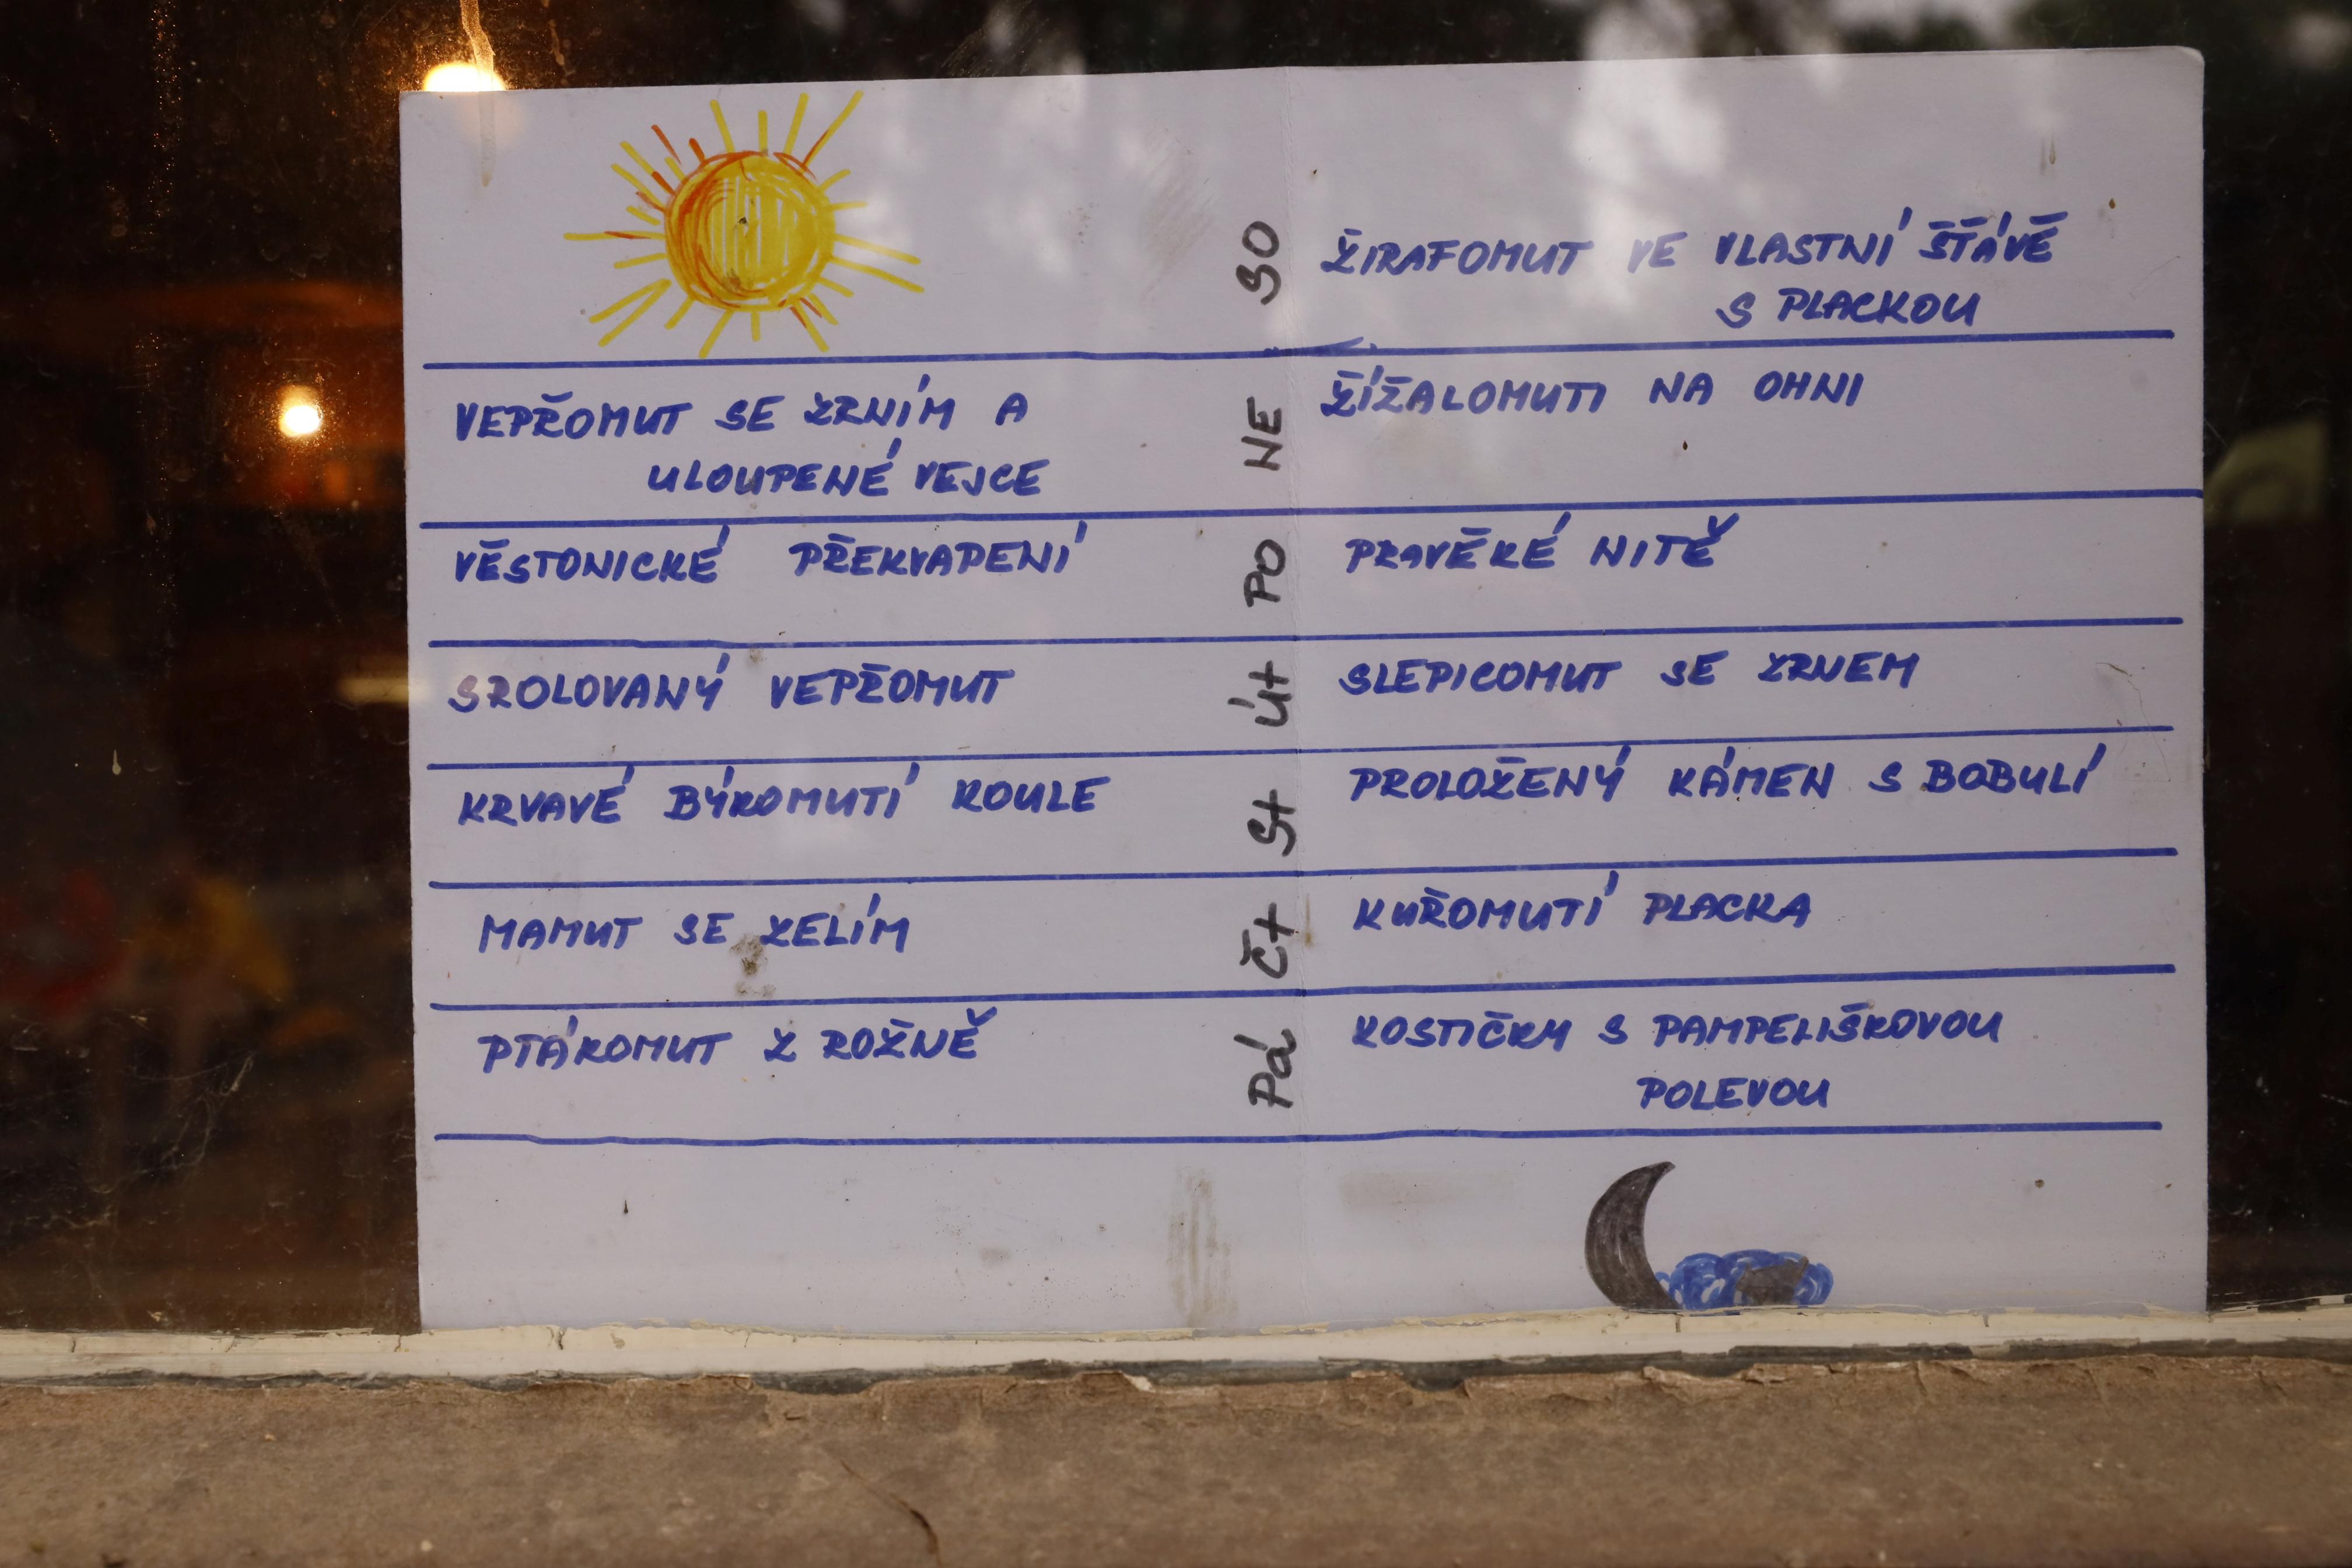 SO
ŽIRAFOMUT VE VLASTNÍ ŠŤÁVĚ
S PLACKOU
VEPŘOMUT SE ZRNÍM A
ULOUPENÉ VEJCE
NE
ŽÍŽALOMUTI NA OHNI
VĚSTONICKÉ PŘEKVAPENÍ
PO
PRAVĚKÉ NITĚ
SROLOVANÝ VEPŘOMUT
Út
SLEPICOMUT SE ZRNEM
KRVAVÉ BÝKOMUTÍ KOULE
St
PROLOŽENÝ KÁMEN S BOBULÍ
MAMUT SE ZELÍM
Čt
KUŘOMUTÍ PLACKA
PTÁKOMUT Z ROŽNĚ
Pá
KOSTIČKY S PAMPELIŠKOVOU
POLEVOU